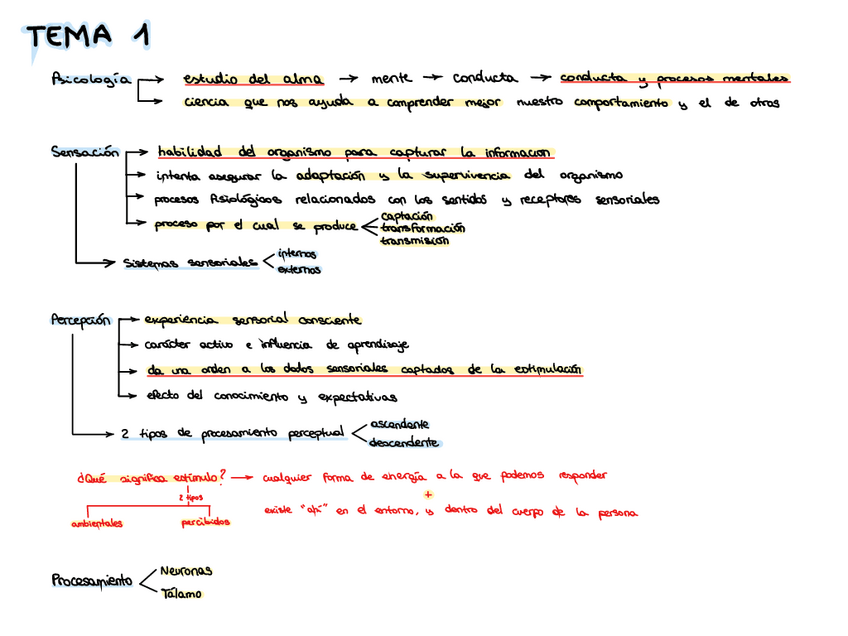 TEMA 1
Psicología → estudio del alma → mente → conducta → conducta y procesos mentales
→ ciencia que nos ayuda a comprender mejor nuestro comportamiento y el de otros
Sensación → habilidad del organismo para capturar la información
→ intenta asegurar la adaptación y la supervivencia del organismo
→ procesos fisiológicos relacionados con los sentidos y receptores sensoriales
→ proceso por el cual se produce < captación
transformación
transmisión
→ Sistemas sensoriales < internos
externos
Percepción → experiencia sensorial consciente
→ carácter activo e influencia de aprendizaje
→ da un orden a los dados sensoriales captados de la estimulación
→ efecto del conocimiento y expectativas
→ 2 tipos de procesamiento perceptual < ascendente
descendente
¿Qué significa estímulo? → cualquier forma de energía a la que podemos responder
2 tipos
+
existe "ahí" en el entorno, y dentro del cuerpo de la persona
ambientales percibidos
Procesamiento < Neuronas
Tálamo